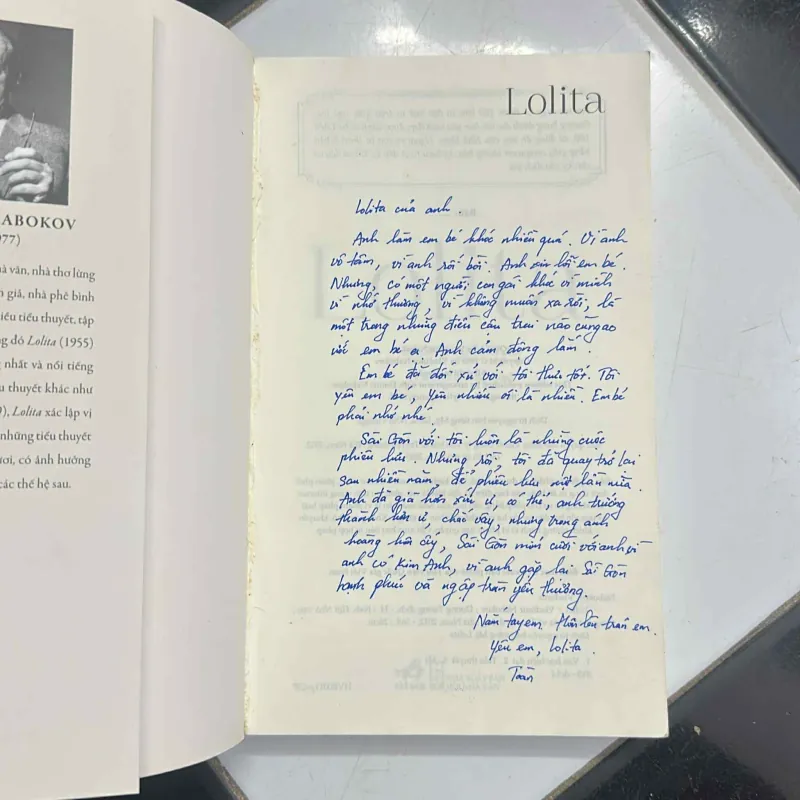 ABOKOV
977)
à văn, nhà thơ lừng
n giả, nhà phê bình
iểu tiểu thuyết, tập
ng đó Lolita (1955)
g nhất và nổi tiếng
u thuyết khác như
), Lolita xác lập vị
những tiểu thuyết
ươi, có ảnh hưởng
các thế hệ sau.
Lolita
Lolita của anh.
Anh làm em bé khóc nhiều quá. Vì anh
vô tâm, vì anh rối bời. Anh xin lỗi em bé.
Nhưng, có một người con gái khóc vì mình
vì nhớ thương, vì không muốn xa rời, là
một trong những điều cậu trai nào cũng ao
ước em bé ạ. Anh cảm động lắm.
Em bé đã đối xử với tôi thật tốt. Tôi
yêu em bé, yêu nhiều ơi là nhiều. Em bé
phải nhớ nhé.
Sài Gòn với tôi luôn là những cuộc
phiêu lưu. Nhưng rồi tôi đã quay trở lại
sau nhiều năm, để phiêu lưu một lần nữa.
Anh đã già hơn xíu ư, có thể, anh trưởng
thành hơn ư, chắc vậy, nhưng trong ánh
hoàng hôn ấy, Sài Gòn mỉm cười với anh vì
anh có Kim Anh, vì anh gặp lại Sài Gòn
hạnh phúc và ngập tràn yêu thương.
Nắm tay em. Hôn lên trán em.
Yêu em, Lolita.
Toàn